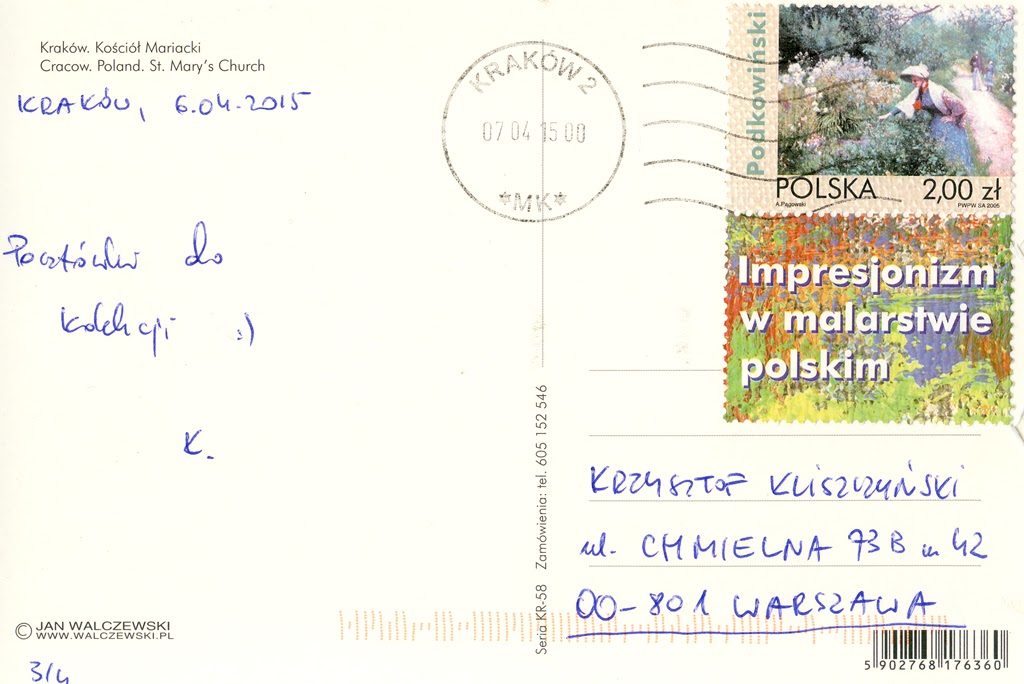 Kraków. Kościół Mariacki
Cracow. Poland. St. Mary's Church
KRAKÓW, 6.04.2015
Pocztówka do
kolekcji :)
K.
© JAN WALCZEWSKI
WWW.WALCZEWSKI.PL
3/4
KRAKÓW 2
07 04 15 00
*MK*
Seria KR-58 Zamówienia: tel. 605 152 546
Podkowiński
POLSKA 2,00 zł
A.Pągowski PWPW SA 2005
Impresjonizm
w malarstwie
polskim
KRZYSZTOF KLISZCZYŃSKI
ul. CHMIELNA 73B m 42
00-801 WARSZAWA
5 902768 176360